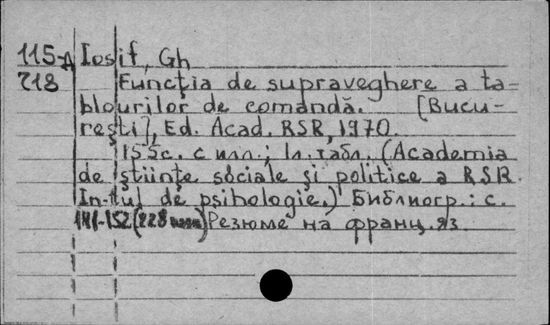 115-Д Iosif, Gh
718 Funcția de supraveghere a ta-
blourilor de comandă. [Bucu-
rești], Ed. Acad. RSR, 1970.
155с. с илл.; 1л. табл. (Academia
de științe sociale și politice a RSR.
In-tul de psihologie.) Библиогр.: с.
141-152 (228 назв) Резюме на франц. яз.